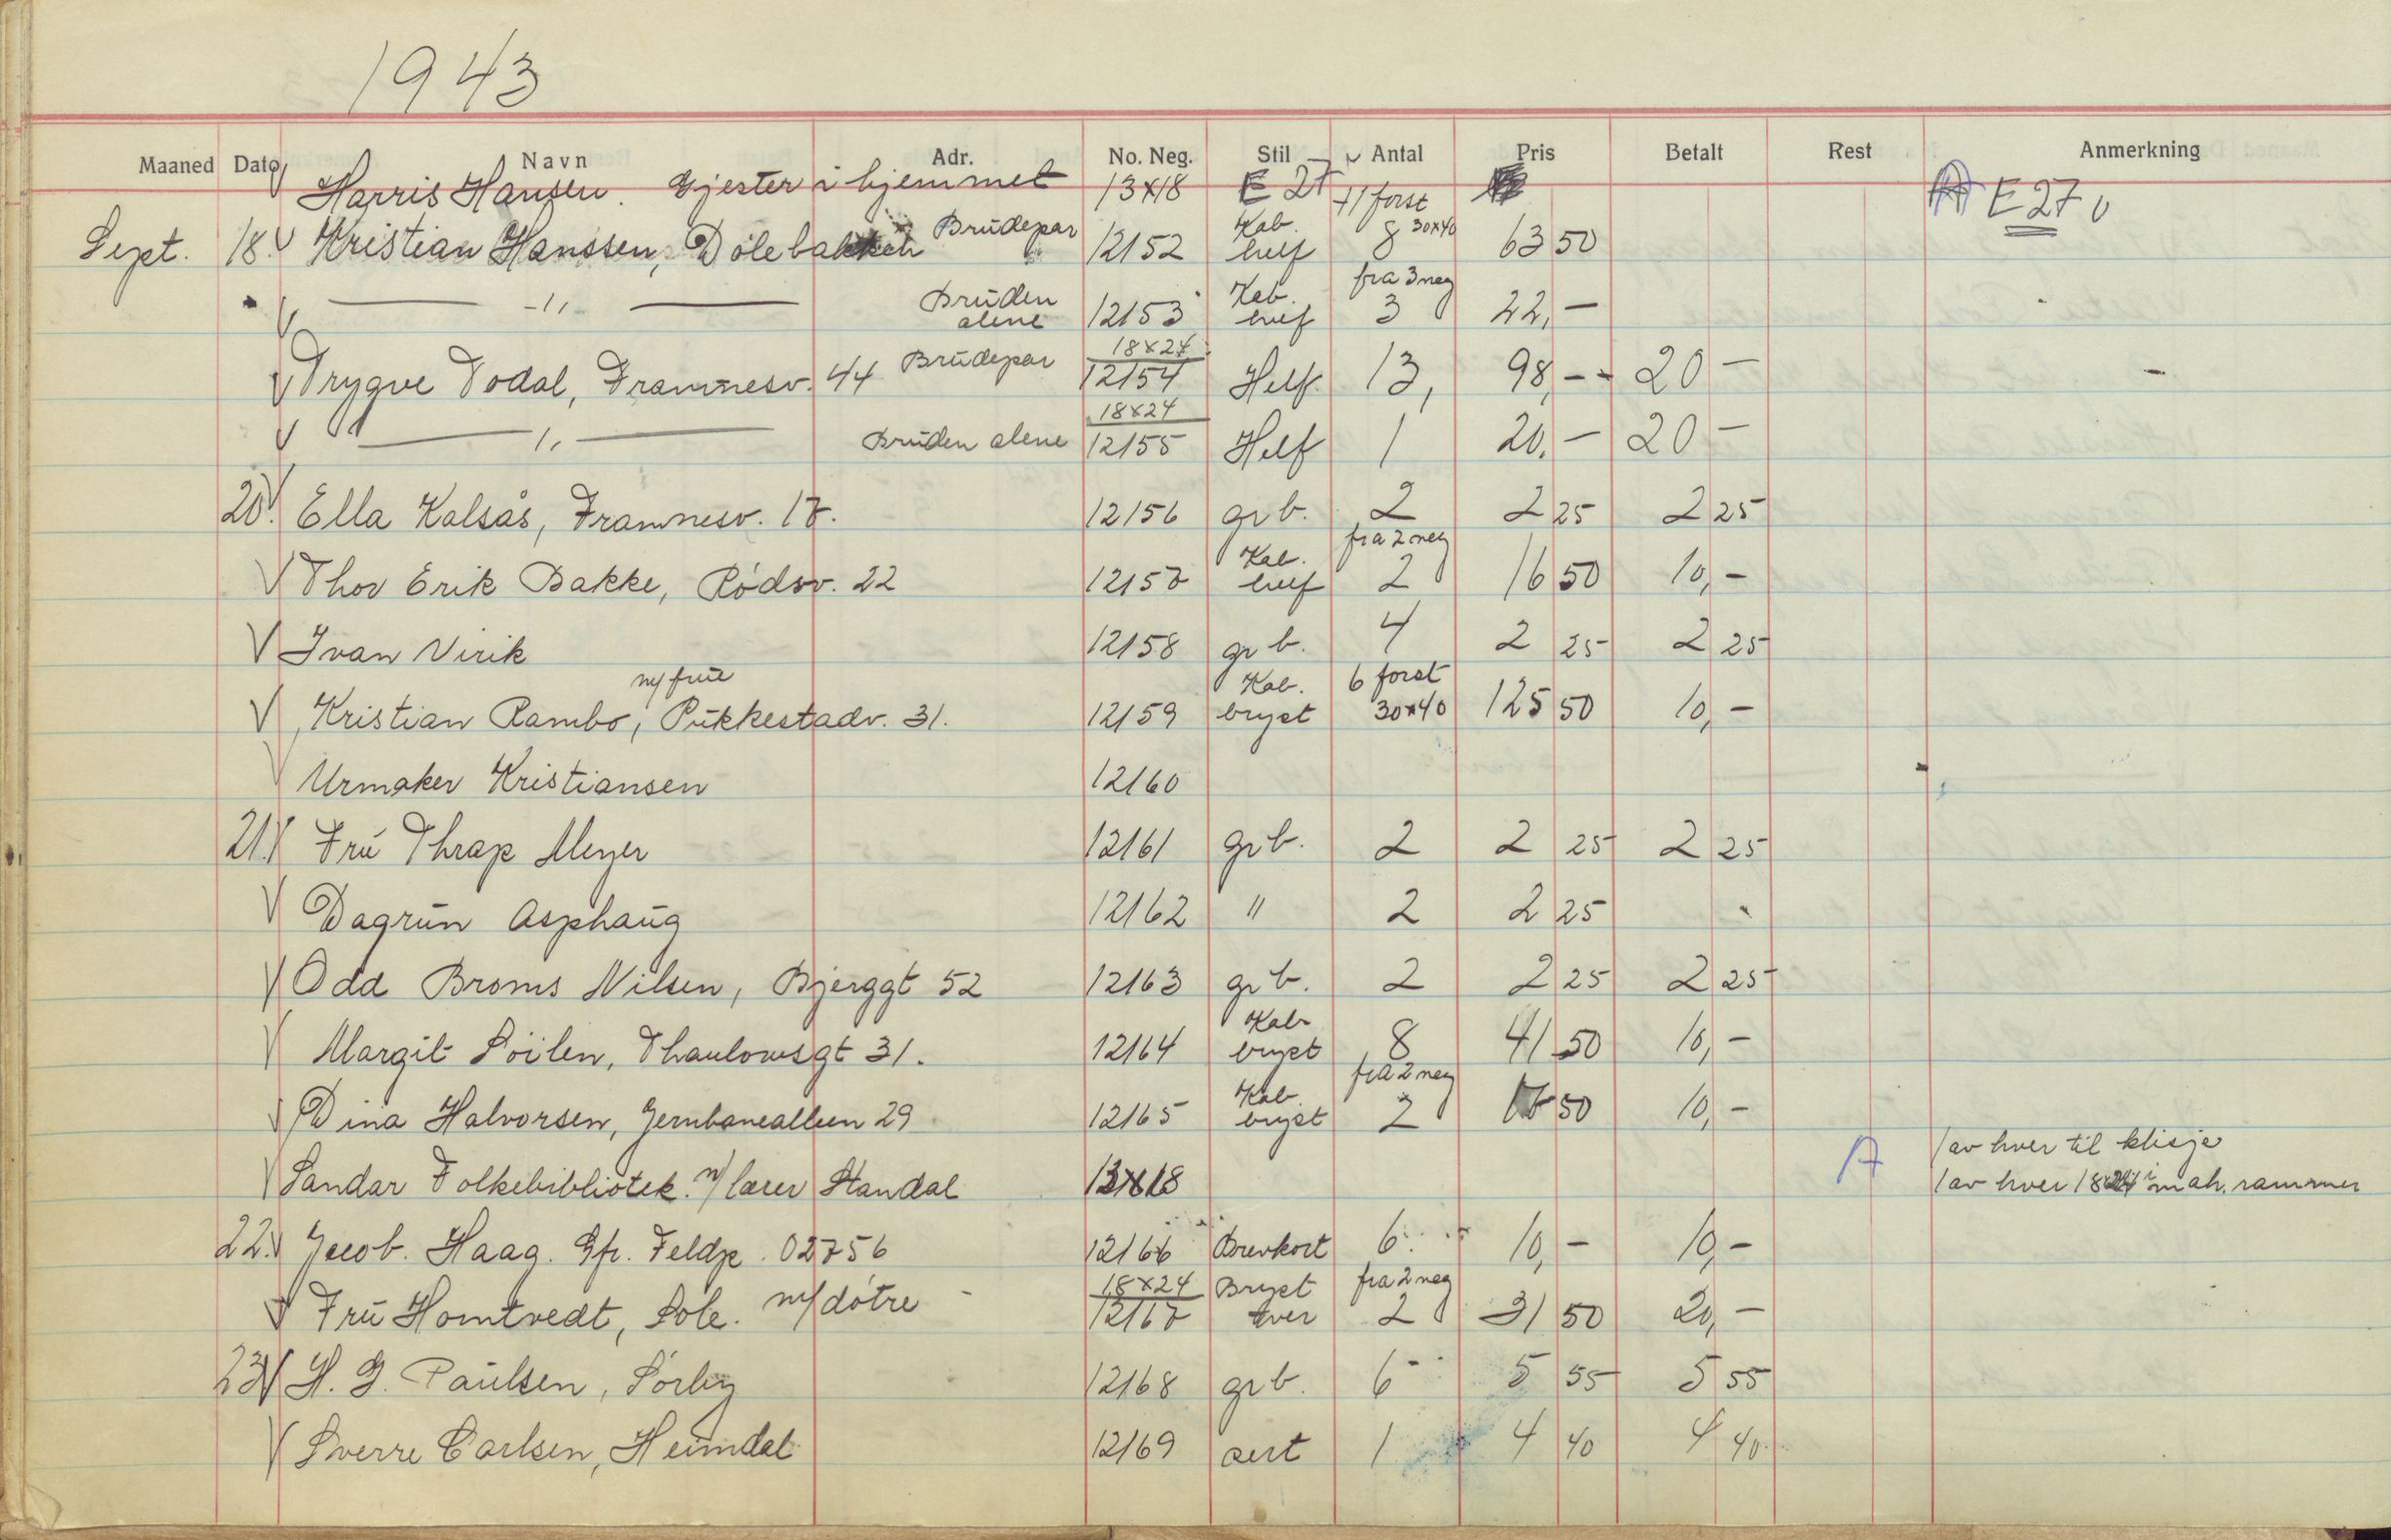 1943
Maaned Dato Navn Adr. No. Neg. Stil Antal Pris Betalt Rest Anmerkning
Harris Hansen. Gjester i hjemmet 13x18 E 27 A E 27 v
+1 forst
Sept. 18. V Kristian Hanssen, Dølebakken Brudepar 12152 Kab. helf 8 30x40 63 50
V —— -"- —— Bruden alene 12153 Kab. helf fra 3 neg 3 22,-
V Trygve Todal, Framnesv. 44 Brudepar 18x24 12154 Helf 13, 98,- - 20 -
V —— " —— Bruden alene 18x24 12155 Helf 1 20,- 20 -
20. V Ella Kalsås, Framnesv. 17. 12156 gr b. 2 2 25 2 25
V Thor Erik Bakke, Rødsv. 22 12157 Kab. helf fra 2 neg 2 16 50 10,-
V Ivan Virik 12158 gr b. 4 2 25 2 25
V Kristian Rambo, m/frue Pukkestadv. 31. 12159 Kab. bryst 6 forst 30x40 125 50 10,-
V Urmaker Kristiansen 12160
21. V Fru Thrap Meyer 12161 gr b. 2 2 25 2 25
V Dagrun Asphaug 12162 " 2 2 25
V Odd Broms Nilsen, Bjerggt 52 12163 gr b. 2 2 25 2 25
V Margit Söilen, Thaulowsgt 31. 12164 Kab bryst 8 41 50 10,-
V Dina Halvorsen, Jernbanealleen 29 12165 Kab bryst fra 2 neg 2 50 10,-
V Sandar Folkebibliotek. m/ lærer Standal 13x18 A 1 av hver til klisje
1 av hver 18x24 i mah. rammer
22. V Jacob. Haag. Gfr. Feldp. 02756 12166 Brevkort 6 10,- 10,-
V Fru Homtvedt, Sole. m/døtre 18x24 12167 Bryst tver fra 2 neg 2 31 50 20,-
23 V H. G. Paulsen, Sørby 12168 gr b. 6 5 55 5 55
V Sverre Carlsen, Heimdal 12169 sert 1 4 40 4 40